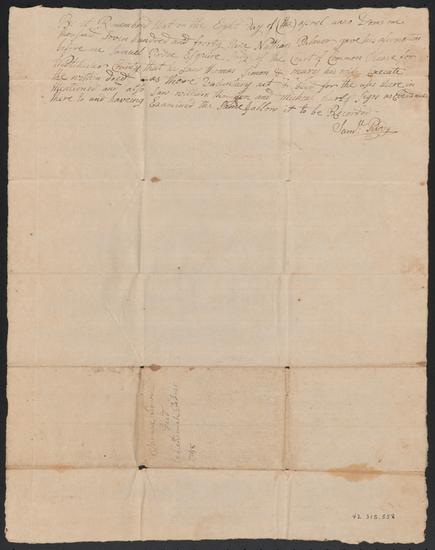 Be it Remembred that on the Eight Day of (the) aprel anno Domi one
thousand seven hundred and forty five Nathan Palmer gave his afermation
before me Samuel Purdy Esquire Judg of the Court of Common Please for
Westchester County that he saw Thomas Simon & mary his wife execute
the written deed as there Valuntary act & Deed for the uses there in
Mentioned and also saw william and Sign as Evidences
there to and haveing Examined the same I allow it to be Recorded
Sam.ll Purdy
Thomas
Deed
42.315.558